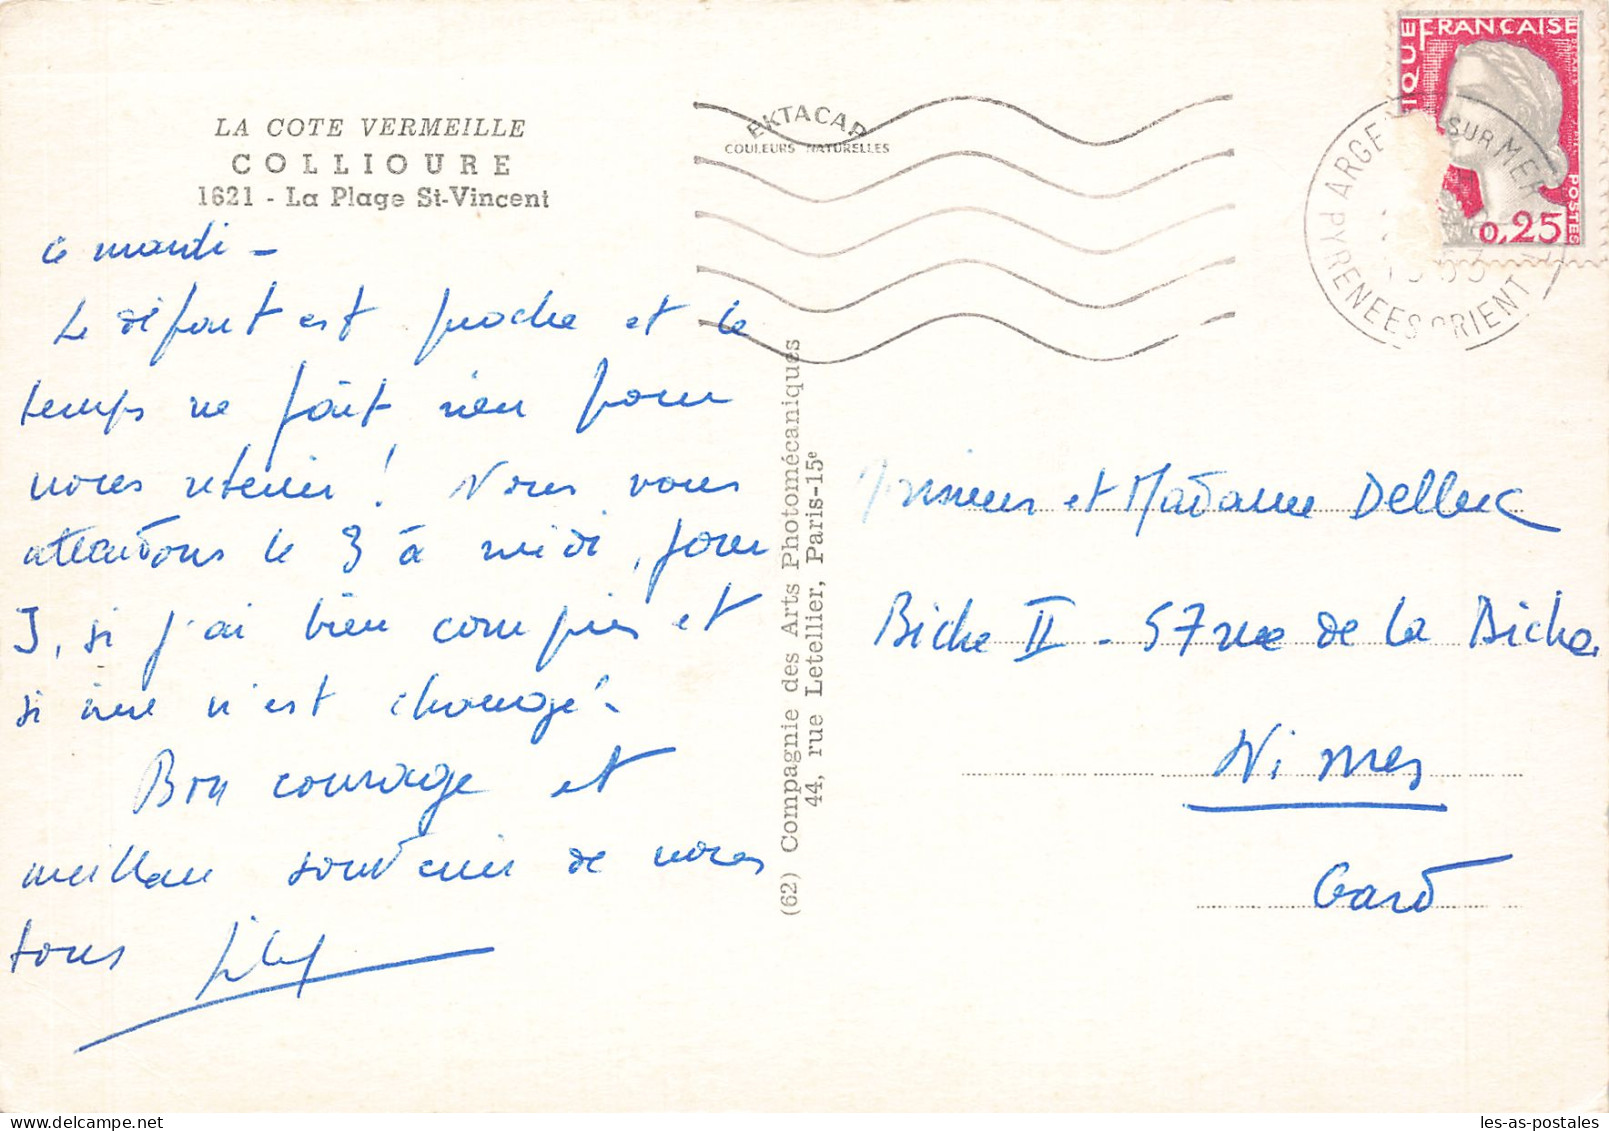 LA COTE VERMEILLE
COLLIOURE
1621 - La Plage St-Vincent
Ce mardi -
Le départ est proche et le
temps ne fait rien pour
nous retenir ! Nous vous
attendons le 3 à midi, pour
3, si j'ai bien compris et
si rien n'est changé.
Bon courage et
meilleur souvenir de nous
tous
EKTACAP
COULEURS NATURELLES
(62) Compagnie des Arts Photomécaniques
44, rue Letellier, Paris-15e
IQUE FRANÇAISE
POSTES
0,25
ARGE SUR MER
PYRENEES ORIENT
Monsieur et Madame Delluc
Biche II - 57 rue de la Biche
Nimes
Gard
les-as-postales